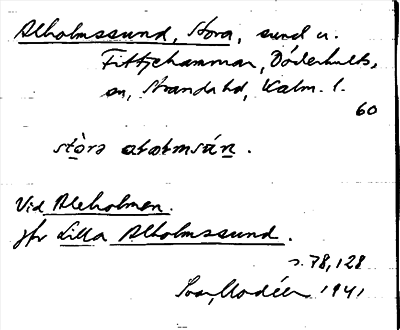 Alholmssund, Stora, sund u.
Fittjehammar, Döderhults
sn, Stranda hd, Kalm. l.
60
stòrə aɫɔɫmsún.
Vid Aleholmen.
jfr Lilla Alholmssund.
s. 78, 128
Ivar Modéer 1941